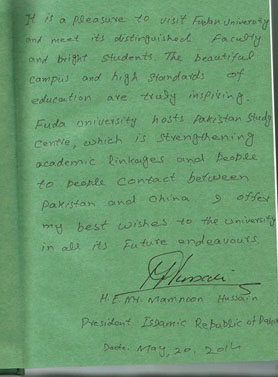 It is a pleasure to visit Fudan University
and meet its distinguished Faculty
and bright students. The beautiful
campus and high standards of
education are truly inspiring.
Fuda university hosts Pakistan Study
Centre, which is strengthening
academic linkages and people
to people contact between
Pakistan and China I offer
my best wishes to the university
in all its Future endeavours
H.E. Mr. Mamnoon Hussain
President Islamic Republic of
Date. May, 20. 2014